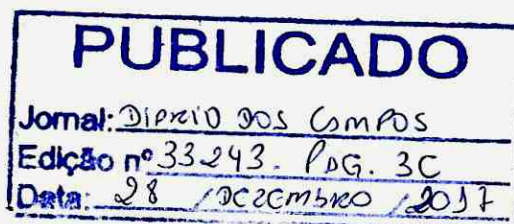 PUBLICADO
Jornal: DIÁRIO DOS CAMPOS
Edição nº 33.243. PÁG. 3C
Data: 28 / DEZEMBRO / 2017